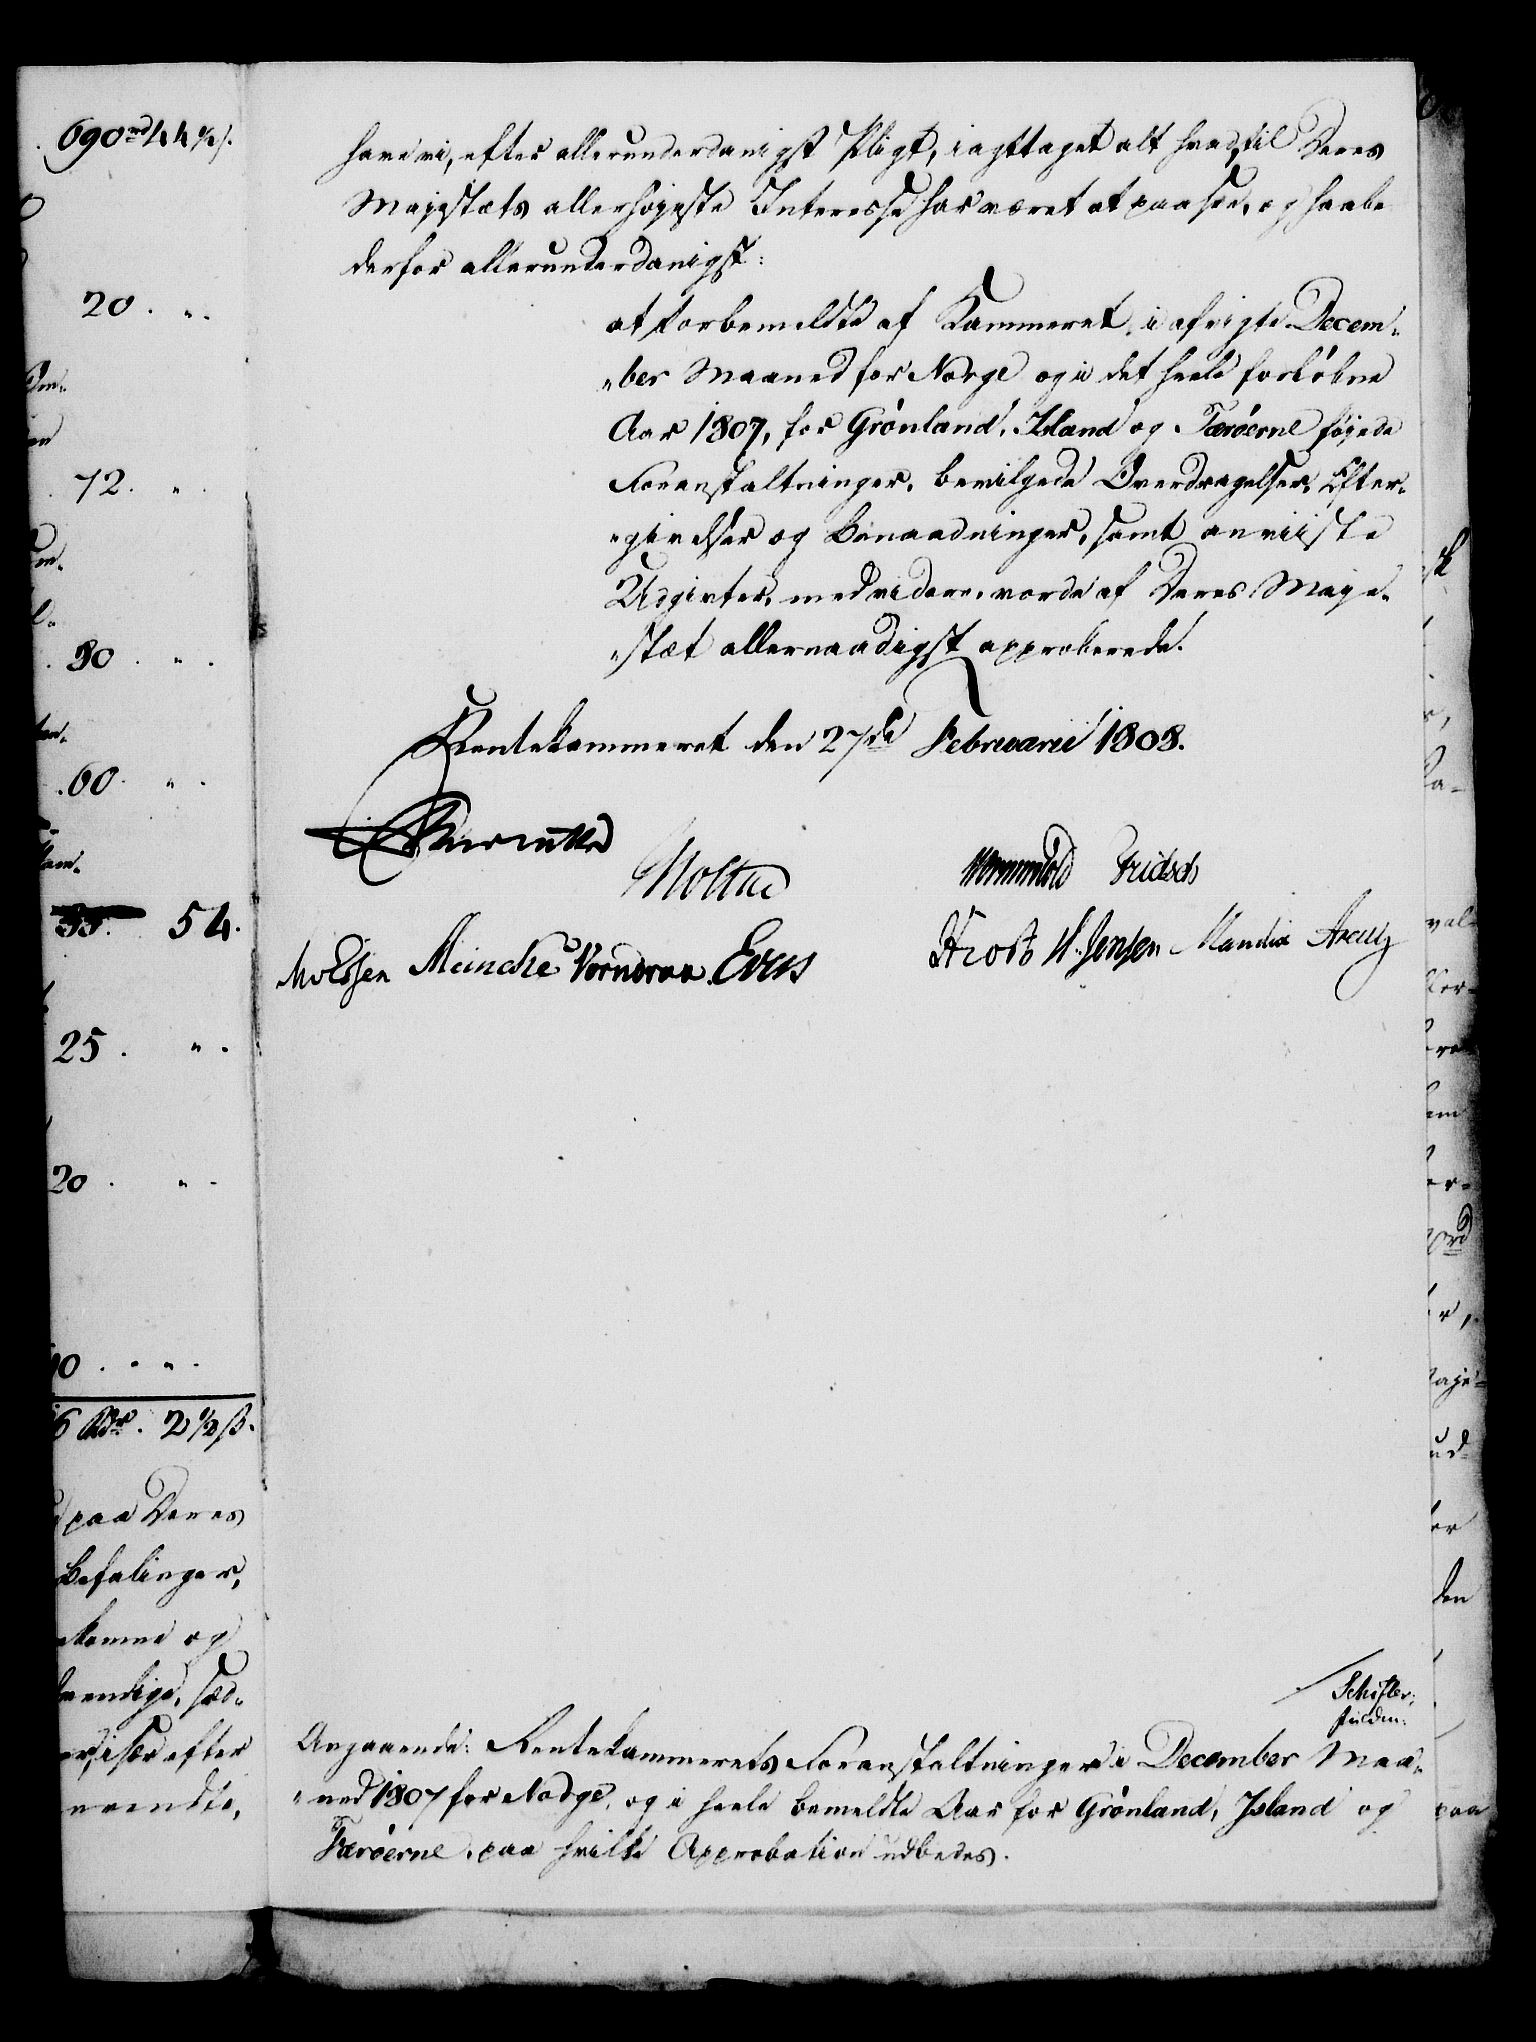 690 rd 44 ½ s.
20 . „ .
72 . „ .
30 . „ .
60 . „ .
54.
25 . „ .
20 . „ .
2 ½ s.
paa Deres
Befalinger,
og
sær efter
have vi, efter allerunderdanigst Pligt, iagttaget alt hvad til Deres
Majestæts allerhøjeste Interesse har været at paasee, og haabe
derfor allerunderdanigst:
at forbemeldte af Kammeret i afvigte Decem„
„ber Maaned for Norge og i det heele forløbne
Aar 1807, for Grønland, Island og Færøerne føjede
Foranstaltninger, bevilgede Overdragelser, Efter„
„givelser og Benaadninger, samt anviiste
Udgivter, med videre, vorde af Deres Maje„
„stæt allernaadigst approberede.
Rentekammeret den 27de Februarii 1808.
Moltke
Wormskiold Fridsch
Meincke Vorndran Evers
Krog H. Jensen Mandix
Angaaende: Rentekammerets Foranstaltninger i December Maa„
„ned 1807 for Norge, og i heele bemeldte Aar for Grønland, Island og
Færøerne, paa hvilke Approbation udbedes.
den
paa